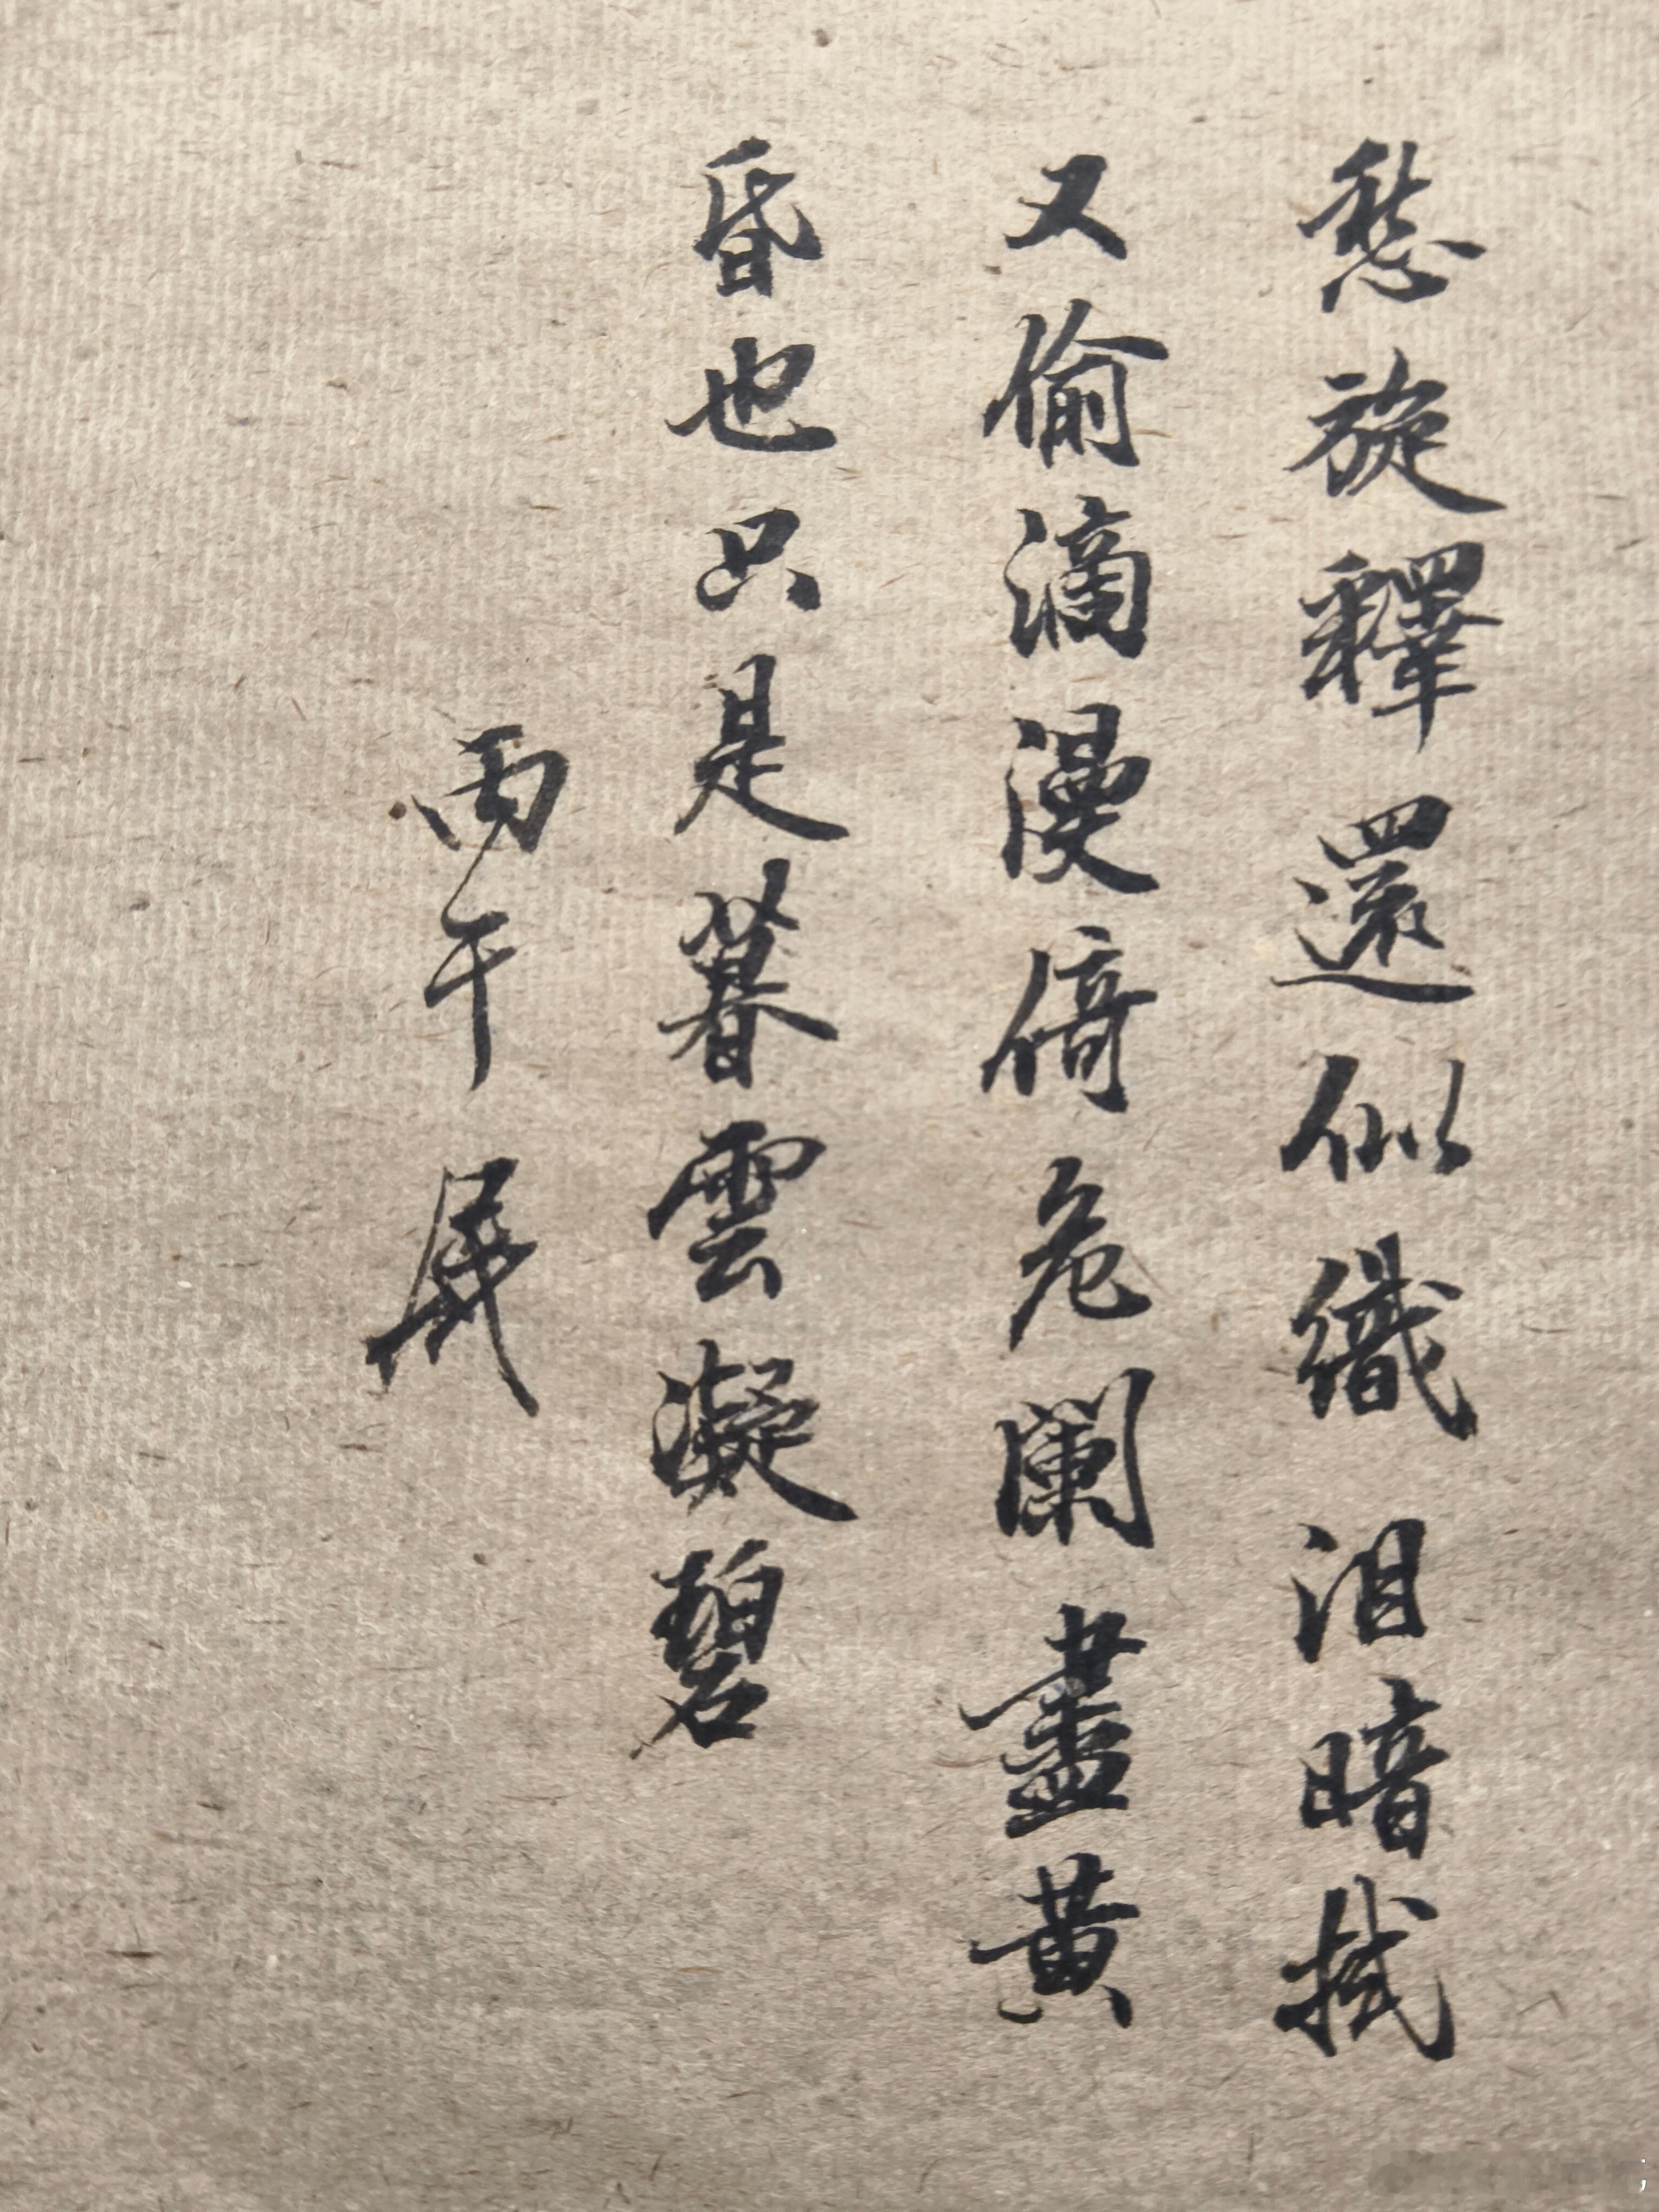 愁旋釋還似織泪暗拭
又偷滴漫倚危闌盡黃
昏也只是暮雲凝碧
丙午